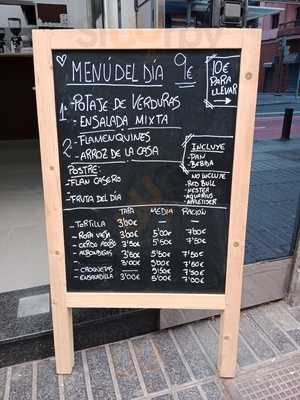 MENÚ DEL DÍA 9€
10€
PARA
LLEVAR
1º
- POTAJE DE VERDURAS
- ENSALADA MIXTA
2º
- FLAMENQUINES
- ARROZ DE LA CASA
INCLUYE
- PAN
- BEBIDA
POSTRE:
- FLAN CASERO
- FRUTA DEL DÍA
NO INCLUYE
RED BULL
AQUARIUS
TAPA MEDIA RACIÓN
- TORTILLA 3'00€ — —
- ROPA VIEJA 3'00€ 5'00€ 7'00€
- CERDO 3'50€ 5'50€ 7'50€
- ALBÓNDIGAS 3'50€ 5'50€ 7'50€
3'00€ 5'00€ 7'00€
- CROQUETAS — 5'50€ 7'50€
- ENSALADILLA 3'00€ 5'00€ 7'00€